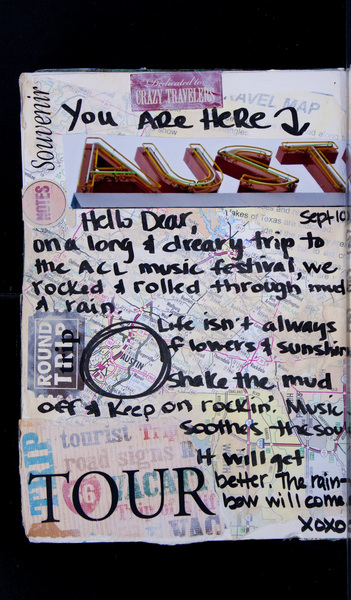 Dedicated to
CRAZY TRAVELERS
Souvenir
TRAVEL MAP
You ARE HERE
AUST
NOTES
Lakes of Texas are
Hello Dear,
Sept 10
on a long & dreary trip to
the ACL music festival, we
rocked & rolled through mud
& rain.
Life isn't always
flowers & sunshin
ROUND
TRIP
AUSTIN
Shake the mud
off & keep on rockin'. Music
soothes the sou
It will get
better. The rain-
bow will come
xoxo
TRIP
tourist Tri
road signs R
6
VACAT
TOUR
VAC